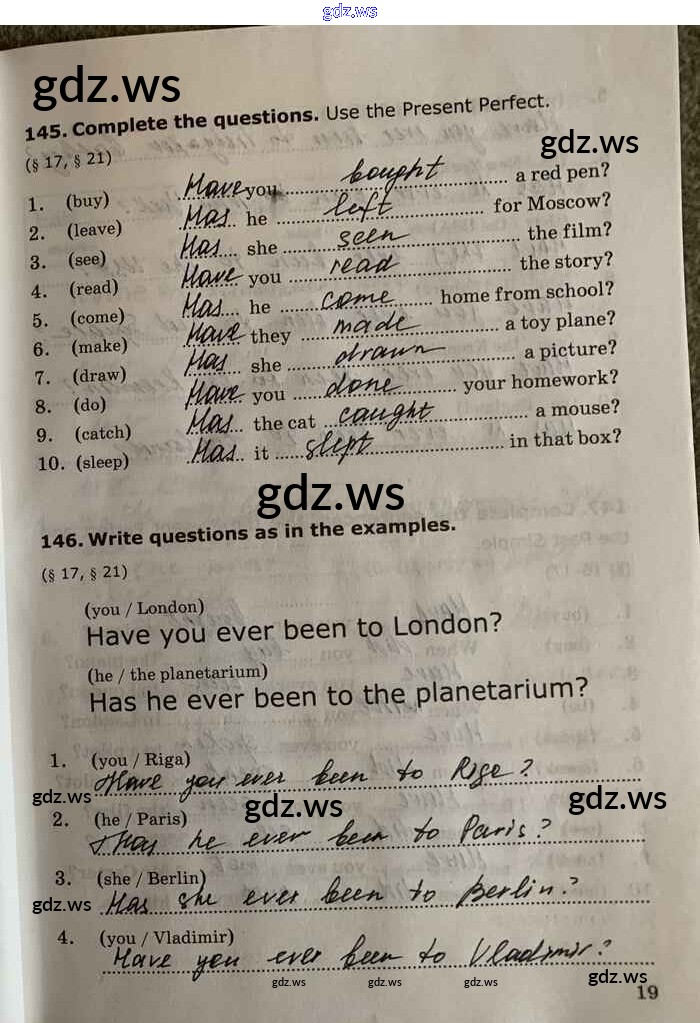 gdz.ws
gdz.ws
145. Complete the questions. Use the Present Perfect.
gdz.ws
(§ 17, § 21)
1. (buy) Have you bought a red pen?
2. (leave) Has he left for Moscow?
3. (see) Has she seen the film?
4. (read) Have you read the story?
5. (come) Has he come home from school?
6. (make) Have they made a toy plane?
7. (draw) Has she drawn a picture?
8. (do) Have you done your homework?
9. (catch) Has the cat caught a mouse?
10. (sleep) Has it slept in that box?
gdz.ws
146. Write questions as in the examples.
(§ 17, § 21)
(you / London)
Have you ever been to London?
(he / the planetarium)
Has he ever been to the planetarium?
1. (you / Riga)
Have you ever been to Rige?
gdz.ws gdz.ws gdz.ws
2. (he / Paris)
Has he ever been to Paris?
3. (she / Berlin)
gdz.ws
Has she ever been to Berlin?
4. (you / Vladimir)
Have you ever been to Vladimir?
gdz.ws gdz.ws gdz.ws gdz.ws
19